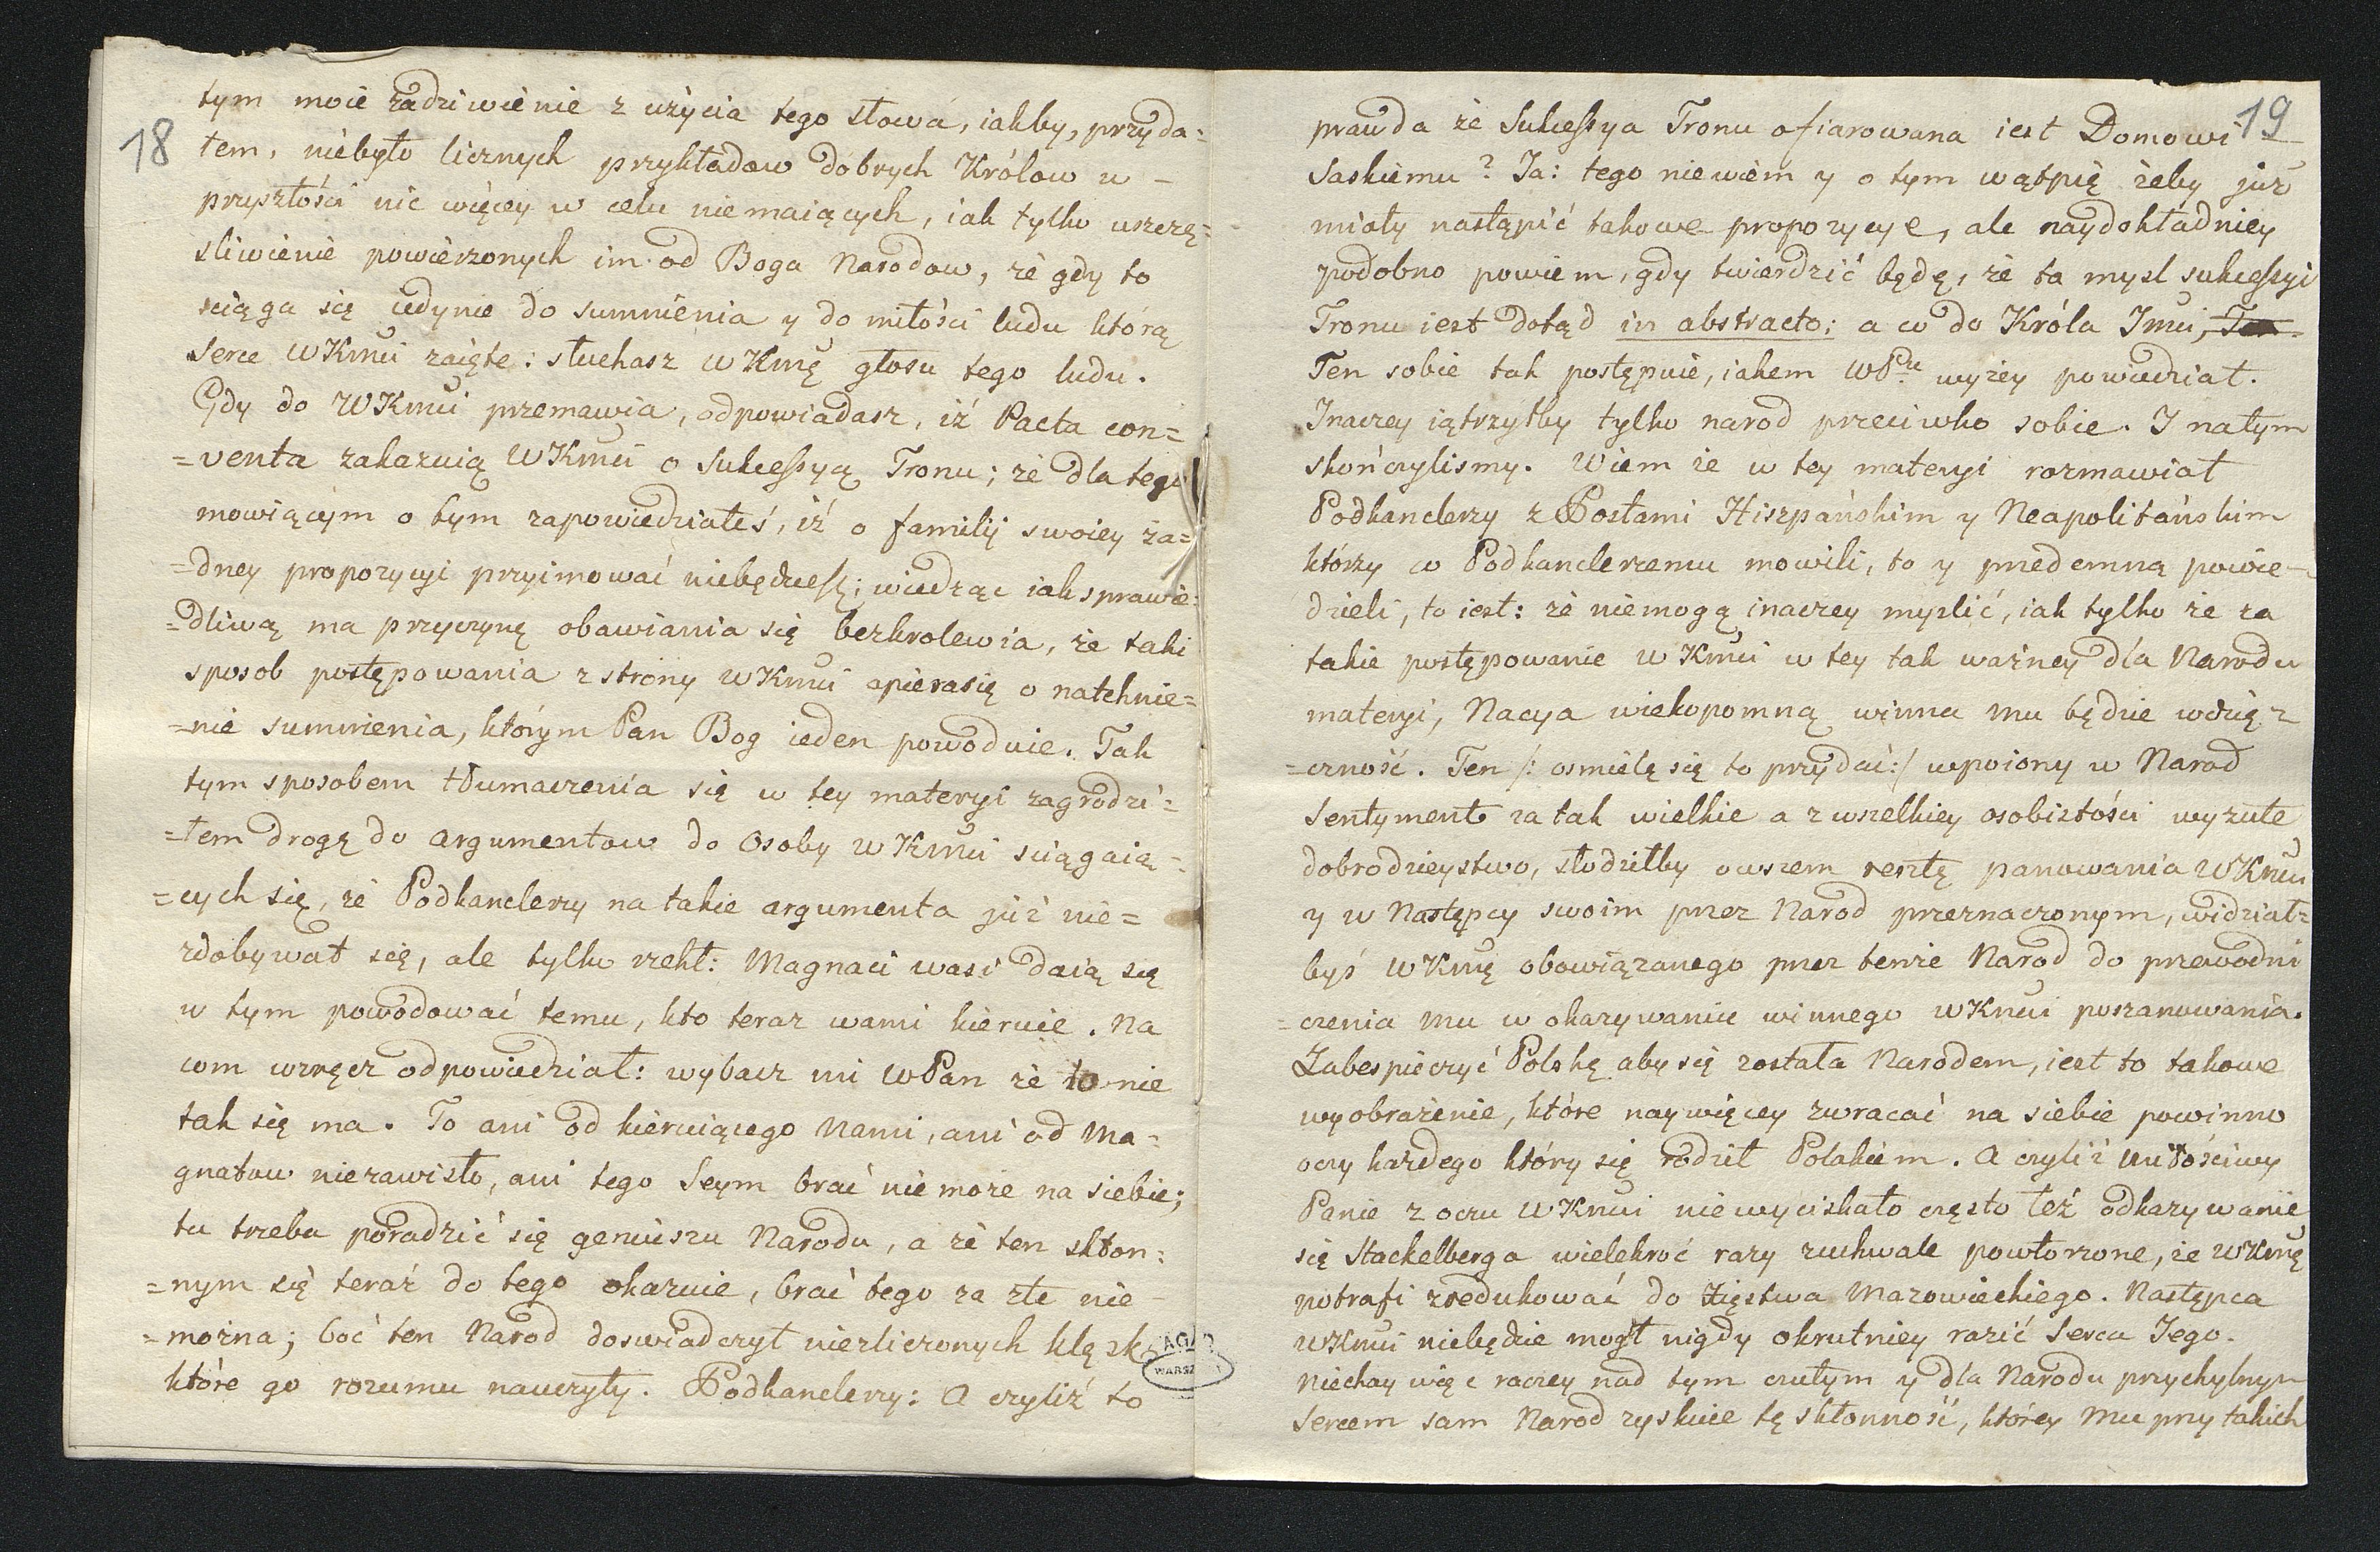 18
tym moie zadziwienie z użycia tego słowa, iakby, przyda=
łem, niebyło licznych przykładow dobrych Królow w
przyszłości nic więcey w celu niemaiących, iak tylko uszczę=
sliwienie powierzonych im od Boga Narodow, że gdy to
sciąga się iedynie do sumnienia y do miłości ludu którą
Serce WKmci zaięte: słuchasz WKmę głosu tego ludu.
Gdy do WKmci przemawia, odpowiadasz, iż Pacta con=
=venta zakazuią WKmci o Sukceſsyą Tronu; że dla tego
mowiącym o tym zapowiedziałeś, iż o familij swoiey ża=
=dney propozycyi przyimować niebędzieſz; wiedząc iak sprawie=
=dliwą ma przyczynę obawiania się bezkrolewia, że taki
sposob postępowania z strony WKmci opiera się o natchnie=
=nie sumnienia, którym Pan Bog ieden powoduie. Tak
tym sposobem tłumaczenia się w tey materyi zagrodzi=
=łem drogę do argumentow do Osoby WKmci sciągaią=
=cych się, że Podkanclerzy na takie argumenta już nie=
zdobywał się, ale tylko rzekł: Magnaci wasi daią się
w tym powodować temu, kto teraz wami kieruie. Na
com wręcz odpowiedział: wybacz mi WPan że to nie
tak się ma. To ani od kieruiącego Nami, ani od Ma=
gnatow niezawisło, ani tego Seym brać nie może na siebie;
tu trzeba poradzić się geniuszu Narodu, a że ten skłon=
=nym się teraz do tego okazuie, brać tego za złe nie
=można; boć ten Narod doswiadczył niezliczonych klęsk
które go rozumu nauczyły. Podkanclerzy: A czyliż to
AGAD
WARSZAWA
19
prawda że Sukceſsya Tronu ofiarowana iest Domowi
Saskiemu? Ja: tego niewiem y o tym wątpię żeby już
miały nastąpić takowe propozycye, ale naydokładniey
podobno powiem, gdy twierdzić będę, że ta mysl sukceſsyi
Tronu iest dotąd in abstracto; a co do Króla Jmci, Ten
Ten sobie tak postępuie, iakem WPu wyżey powiedział.
Inaczey iątrzyłby tylko narod przeciwko sobie. I natym
skończylismy. Wiem że w tey materyi rozmawiał
Podkanclerzy z Posłami Hiszpańskim y Neapolitańskim
którzy co Podkanclerzemu mowili, to y przedemną powie=
dzieli, to iest: że niemogą inaczey myslić, iak tylko że za
takie postępowanie WKmci w tey tak ważney dla Narodu
materyi, Nacya wiekopomną winna mu będzie wdzię=
=czność. Ten /: osmielę się to przydać :/ wpoiony w Narod
Sentyment za tak wielkie a z wszelkiey osobistości wyzute
dobrodzieystwo, słodziłby owszem resztę panowania WKmci
y w Następcy swoim przez Narod przeznaczonym, widział=
byś WKmę obowiązanego przez tenże Narod do przewodni
=czenia mu w okazywaniu winnego WKmci poszanowania.
Zabespieczyć Polskę aby się została Narodem, iest to takowe
wyobrażenie, które naywięcey zwracać na siebie powinno
oczy każdego który się rodził Polakiem. A czyliż Miłościwy
Panie z oczu WKmci niewyciskało często łeź odkazywanie
się Stackelberga wielekroć razy zuchwale powtorzone, że WKmę
potrafi zredukować do Xięstwa Mazowieckiego. Następca
WKmci niebędzie mogł nigdy okrutniey razić Serca Jego.
niechay więc raczey nad tym czułym y dla Narodu przychylnym
Sercem sam Narod zyskuie tę skłonność, którey mu przy takich